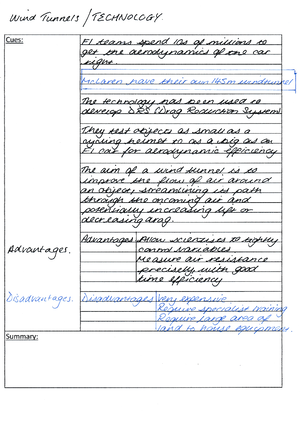 Wind Tunnels / TECHNOLOGY
Cues:
F1 teams spend 10s of millions to
get the aerodynamics of the car
right.
McLaren have their own 145m windtunnel
The technology has been used to
develop DRS (Drag Reduction System)
They test objects as small as a
cycling helmet to as a big as an
F1 car for aerodynamic efficiency
The aim of a wind tunnel is to
improve the flow of air around
an object, streamlining its path
through the oncoming air and
potentially increasing lift or
decreasing drag.
Advantages.
Advantages Allow scientists to tightly
control variables
Measure air resistance
precisely, with good
time efficiency
Disadvantages.
Disadvantages Very expensive
Require specialist training
Require large area of
land to house equipment.
Summary: